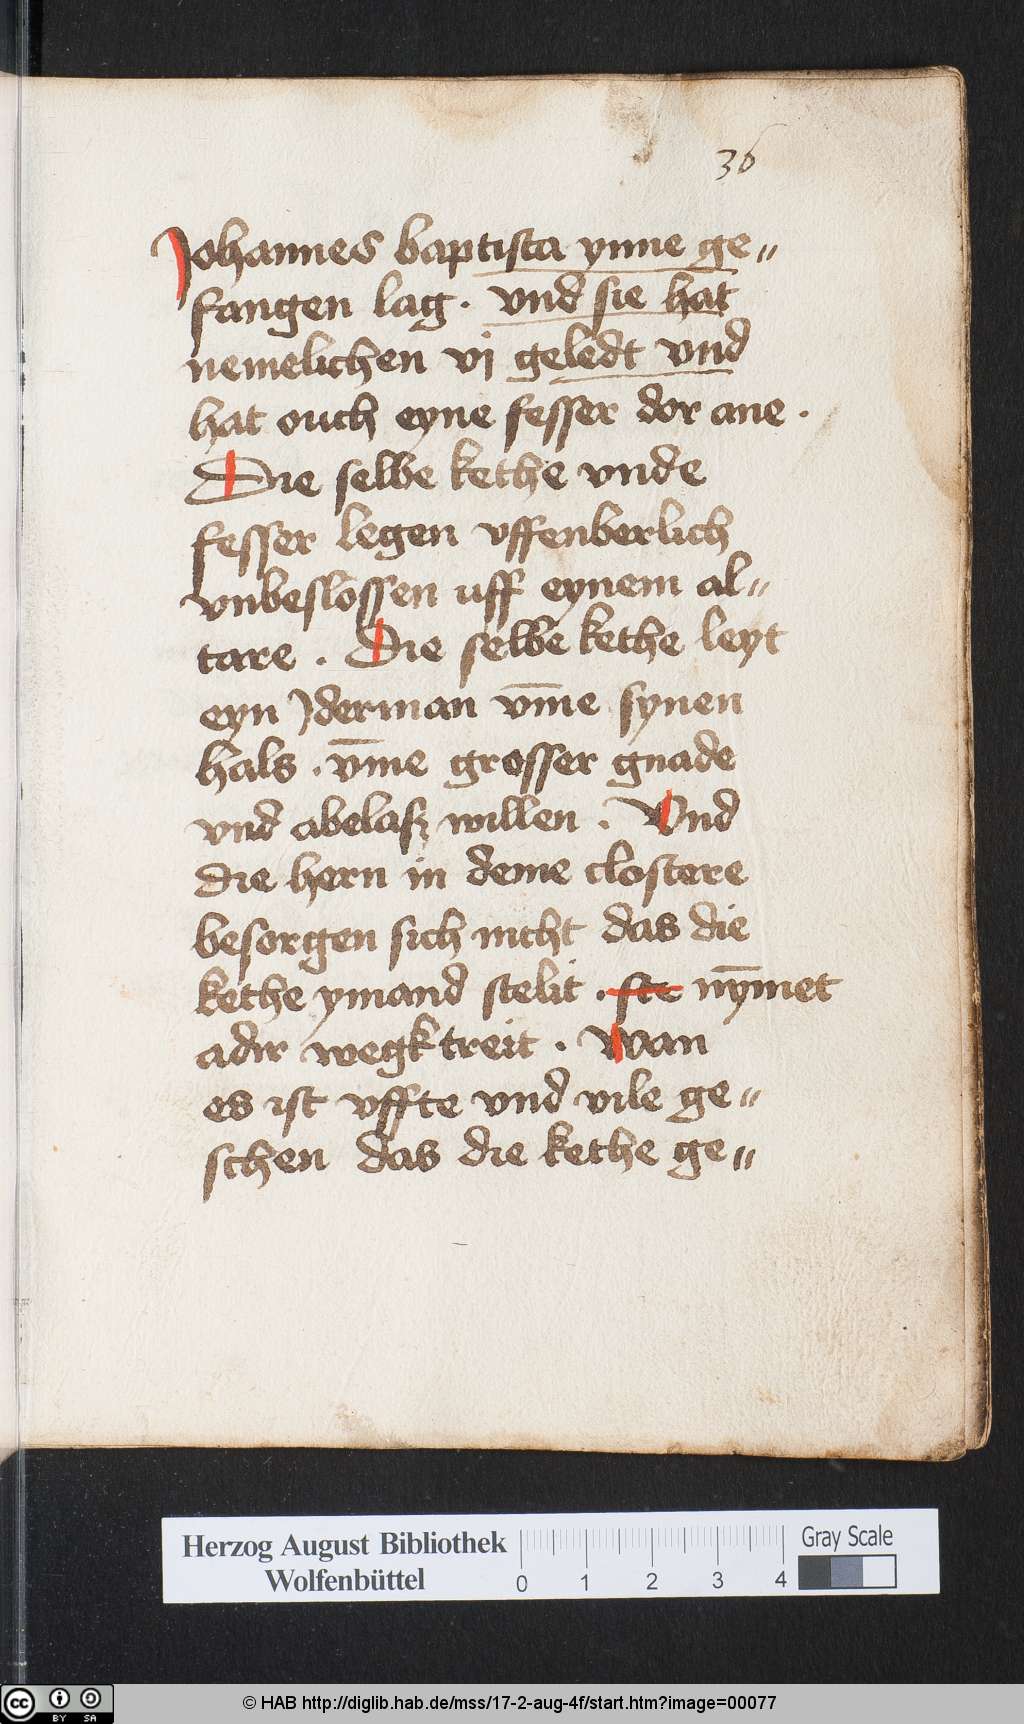 36
Johannes baptista ynne ge„
fangen lag . vnd sie hat
nemelichen vj geledt vnd
hat ouch eyne fesser dor ane .
Die selbe kethe vnde
fesser legen vffenberlich
vnbeslossen uff eynem al„
tare . Die selbe kethe leyt
eyn Jderman vm̄e synen
hals . vm̄e grosser gnade
vnd abelasz willen . Vnd
die hern in deme clostere
besorgen sich nicht das die
kethe ymand stelit . ste nym̄et
adir wegk treit . Wan
es ist vffte vnd vile ge„
schen das die kethe ge„
Herzog August Bibliothek
Wolfenbüttel
0 1 2 3 4
Gray Scale
cc BY SA
© HAB http://diglib.hab.de/mss/17-2-aug-4f/start.htm?image=00077